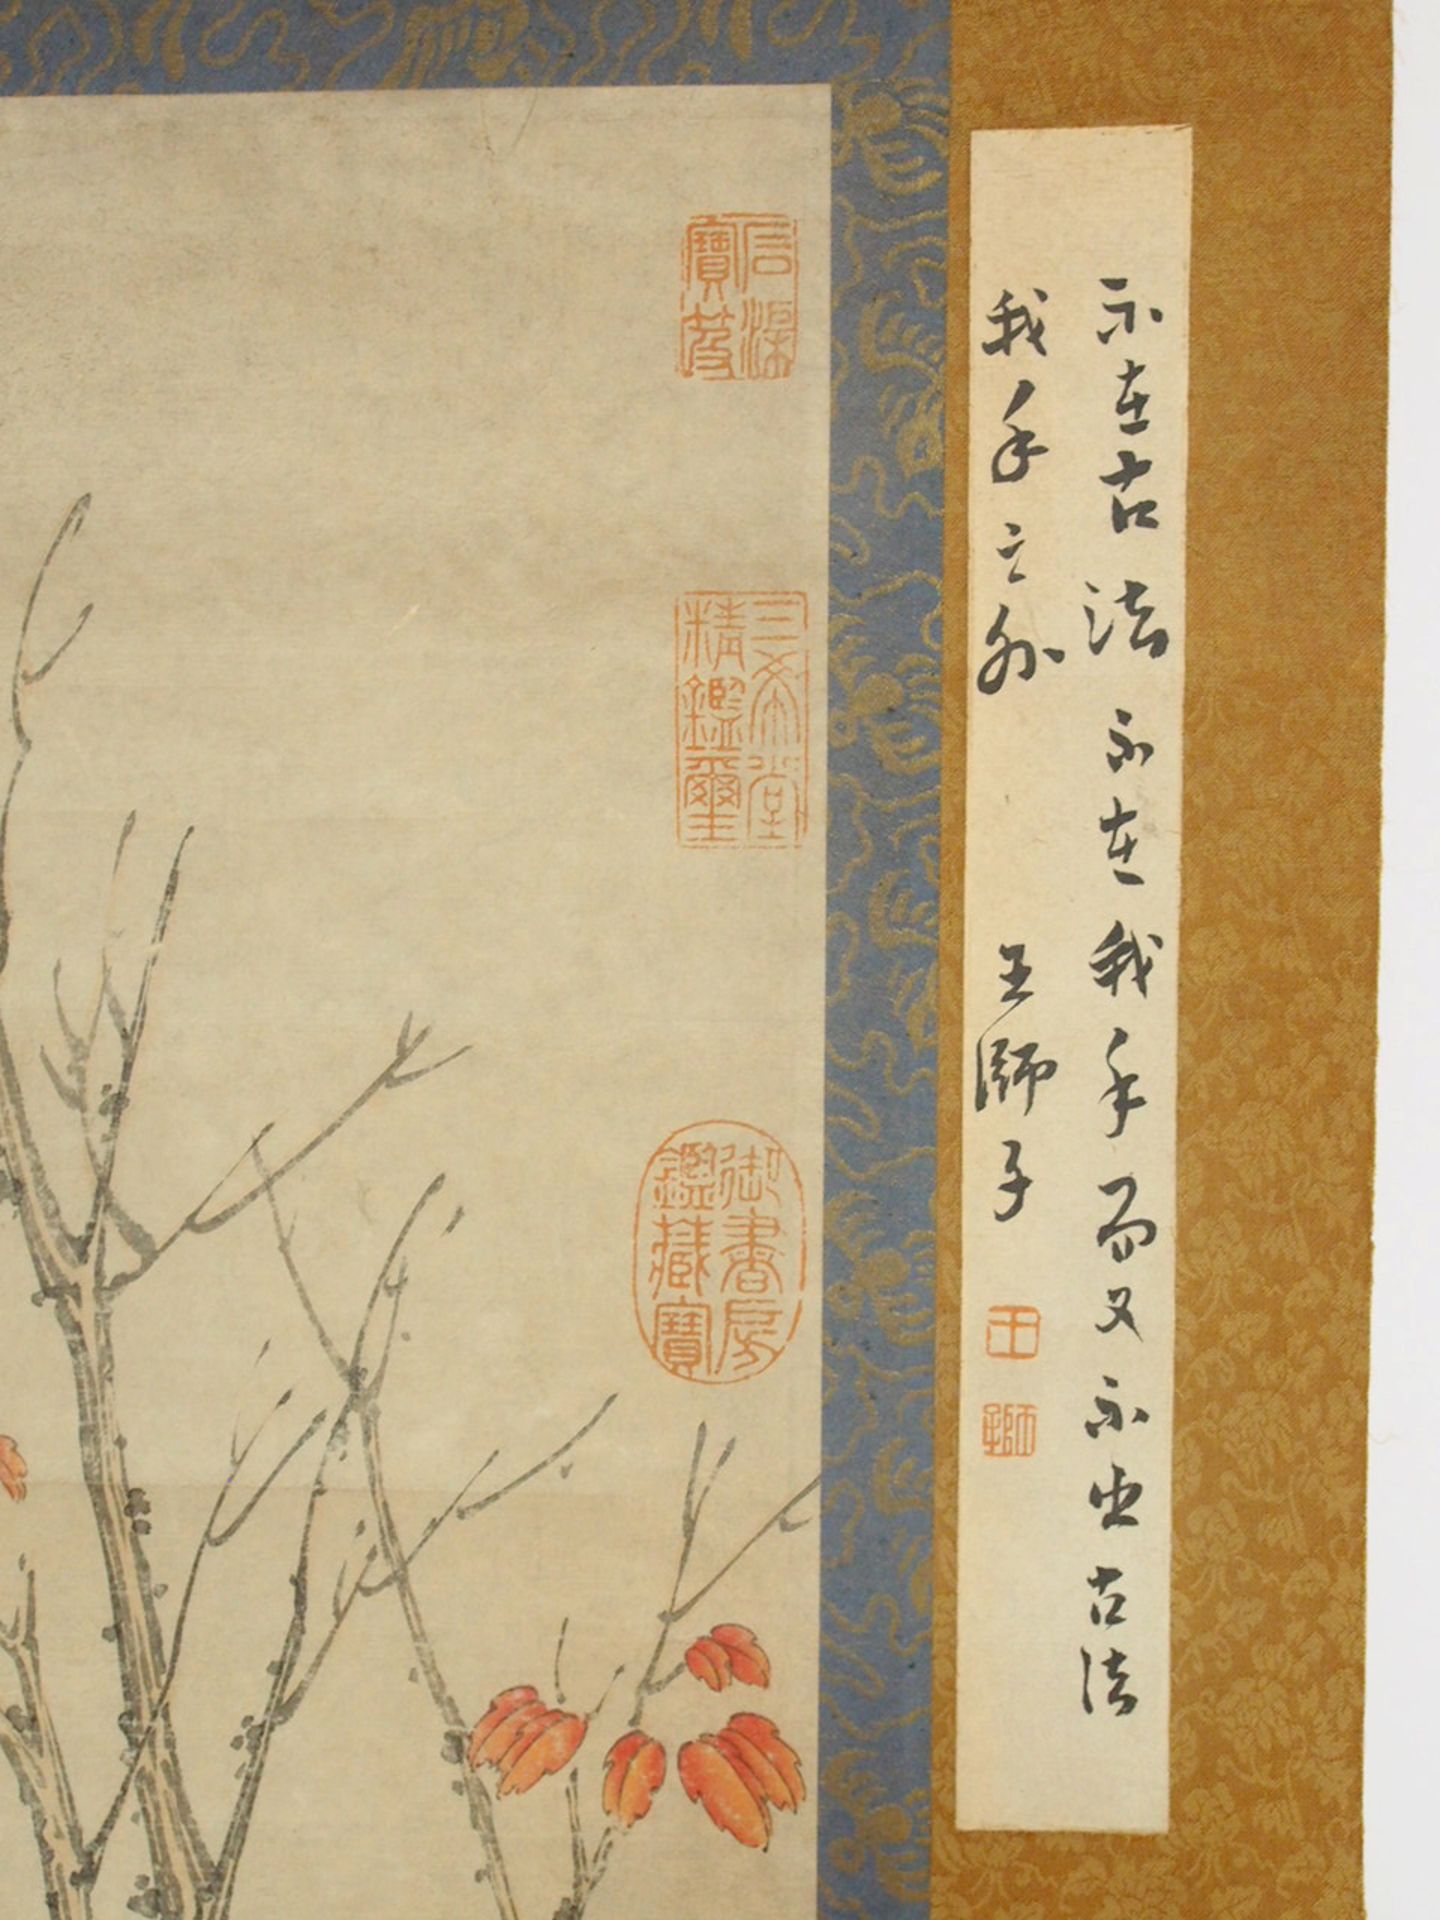 不在古法不在我手而又不出古法
我手之外
王师子
王
师
三希堂
精鑑璽
御書房
鑑藏寶